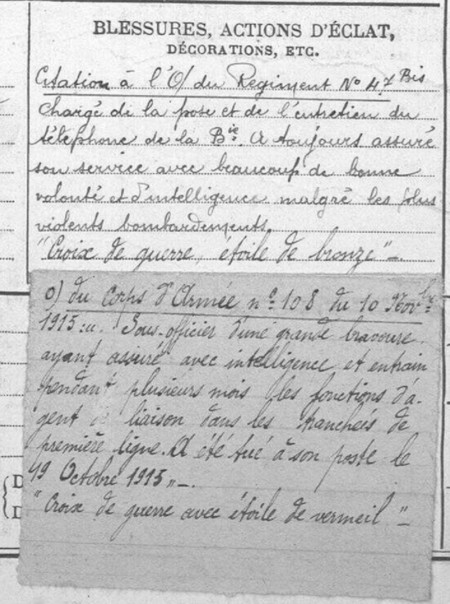 BLESSURES, ACTIONS D'ÉCLAT,
DÉCORATIONS, ETC.
Citation à l'O/ du Regiment N° 47 Bis
Chargé de la pose et de l'entretien du
téléphone de la Bie. A toujours assuré
son service avec beaucoup de bonne
volonté et d'intelligence malgré les plus
violents bombardements
"Croix de guerre, étoile de bronze" -
O) du Corps d'Armée n° 108 du 10 Novbre
1915 :": Sous-officier d'une grande bravoure
ayant assuré avec intelligence et entrain
pendant plusieurs mois les fonctions d'a-
gent de liaison dans les tranchées de
première ligne. A été tué à son poste le
19 Octobre 1915 „ -
"Croix de guerre avec étoile de vermeil" -
D
D